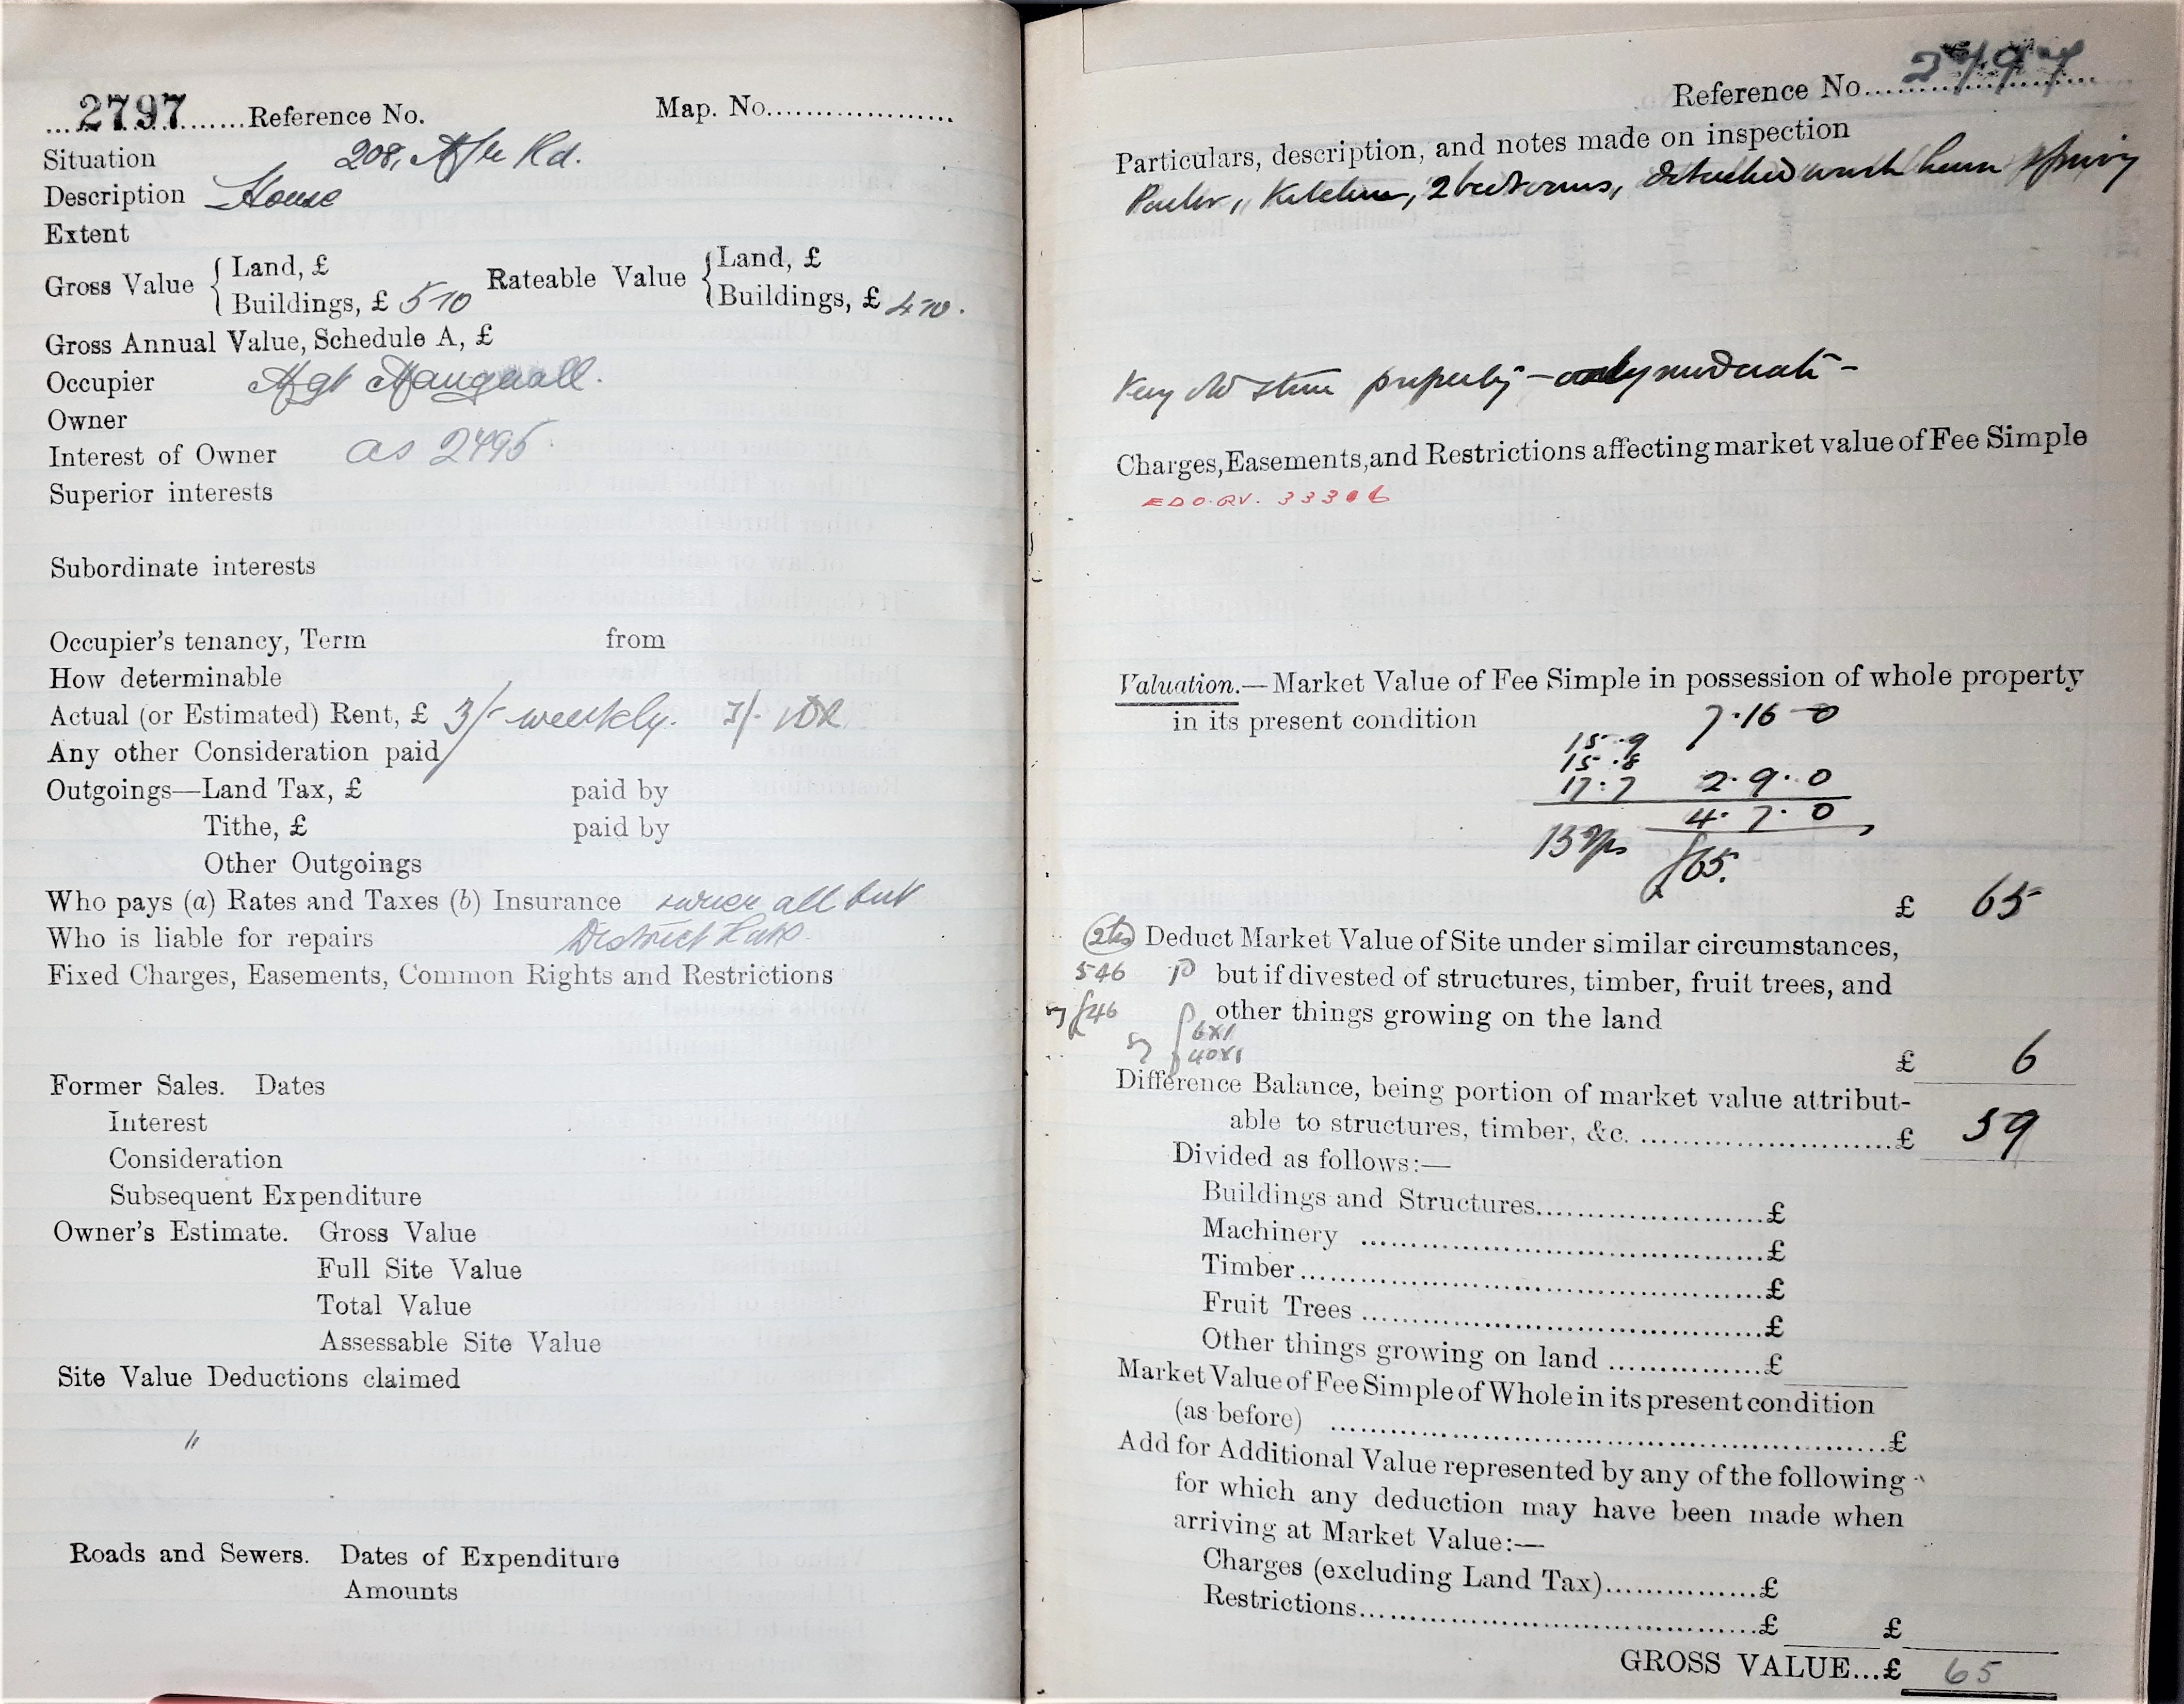 2797 Reference No. Map. No.
Situation 208, Rd.
Description House
Extent
Gross Value { Land, £
Buildings, £ 5 10 Rateable Value { Land, £
Buildings, £ 4 10.
Gross Annual Value, Schedule A, £
Occupier Mgt
Owner
Interest of Owner as 2795
Superior interests
Subordinate interests
Occupier's tenancy, Term from
How determinable
Actual (or Estimated) Rent, £ 3/- weekly. 3/-
Any other Consideration paid
Outgoings—Land Tax, £ paid by
Tithe, £ paid by
Other Outgoings
Who pays (a) Rates and Taxes (b) Insurance owner all but
Who is liable for repairs District Rate.
Fixed Charges, Easements, Common Rights and Restrictions
Former Sales. Dates
Interest
Consideration
Subsequent Expenditure
Owner's Estimate. Gross Value
Full Site Value
Total Value
Assessable Site Value
Site Value Deductions claimed
"
Roads and Sewers. Dates of Expenditure
Amounts
Reference No. 2797
Particulars, description, and notes made on inspection
Parlor, Kitchen, 2 bedrooms, detached wash house
Very old stone property - only moderate -
Charges, Easements, and Restrictions affecting market value of Fee Simple
Valuation.—Market Value of Fee Simple in possession of whole property
in its present condition 7.16 0
15.9
15.8
17.7 2.9.0
4.7.0
15 yrs £65.
£ 65
Deduct Market Value of Site under similar circumstances,
546 but if divested of structures, timber, fruit trees, and
£46 other things growing on the land
6x1
40x1
£ 6
Difference Balance, being portion of market value attribut-
able to structures, timber, &c. £ 59
Divided as follows:—
Buildings and Structures £
Machinery £
Timber £
Fruit Trees £
Other things growing on land £
Market Value of Fee Simple of Whole in its present condition
(as before) £
Add for Additional Value represented by any of the following
for which any deduction may have been made when
arriving at Market Value:—
Charges (excluding Land Tax) £
Restrictions £ £
GROSS VALUE...£ 65